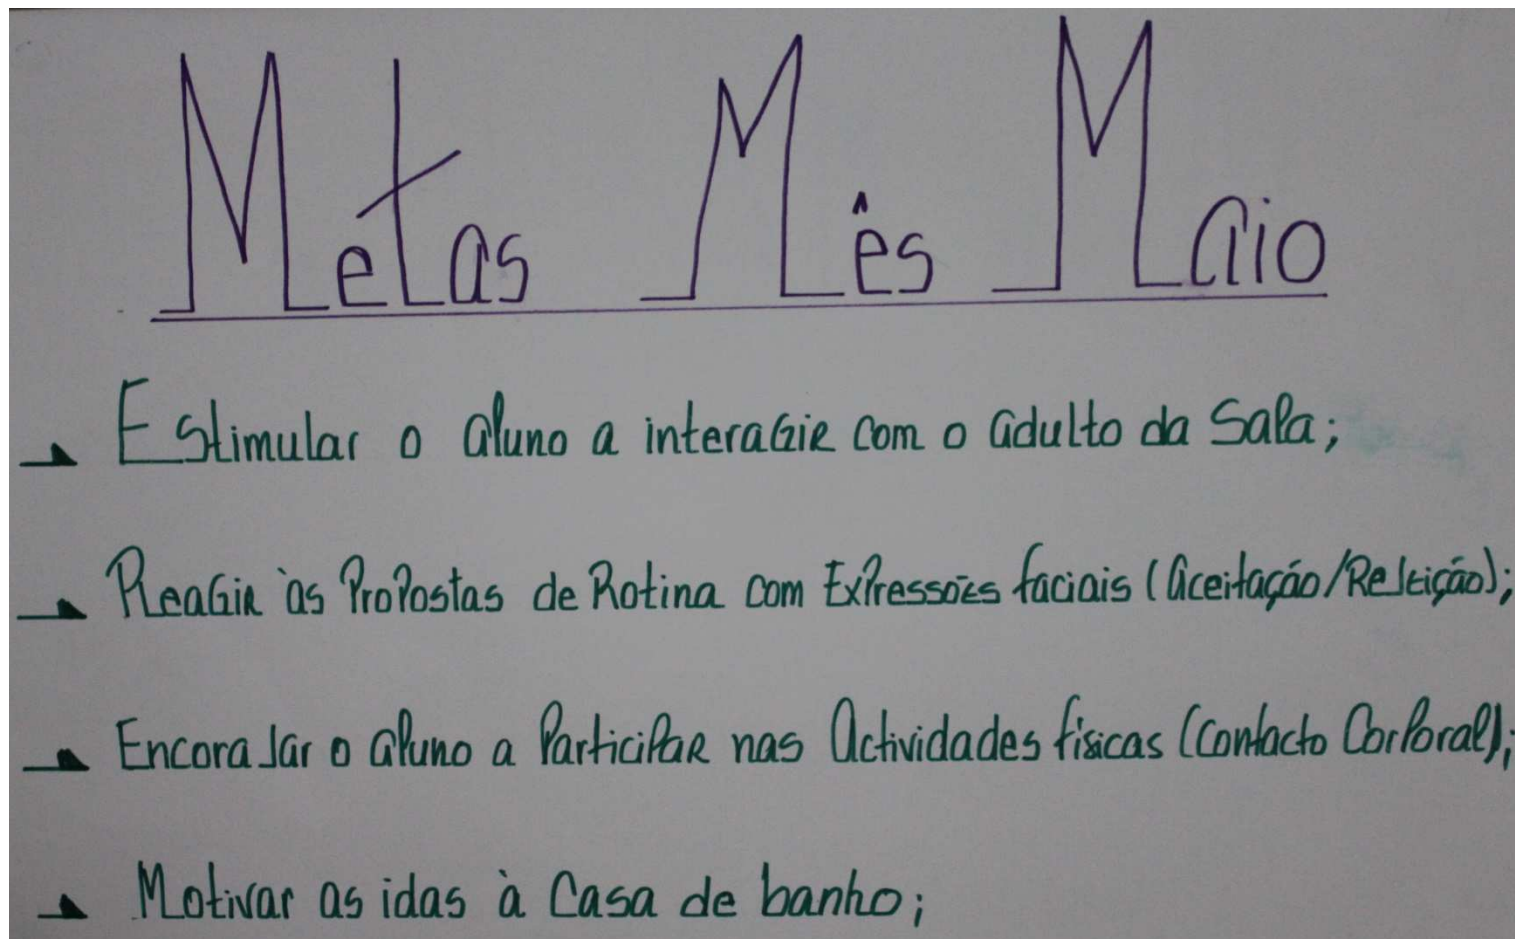 Metas Mês Maio
Estimular o aluno a interagir com o adulto da Sala;
Reagir às Propostas de Rotina com Expressões faciais (aceitação/Rejeição);
Encorajar o aluno a Participar nas Actividades físicas (Contacto Corporal);
Motivar as idas à Casa de banho;